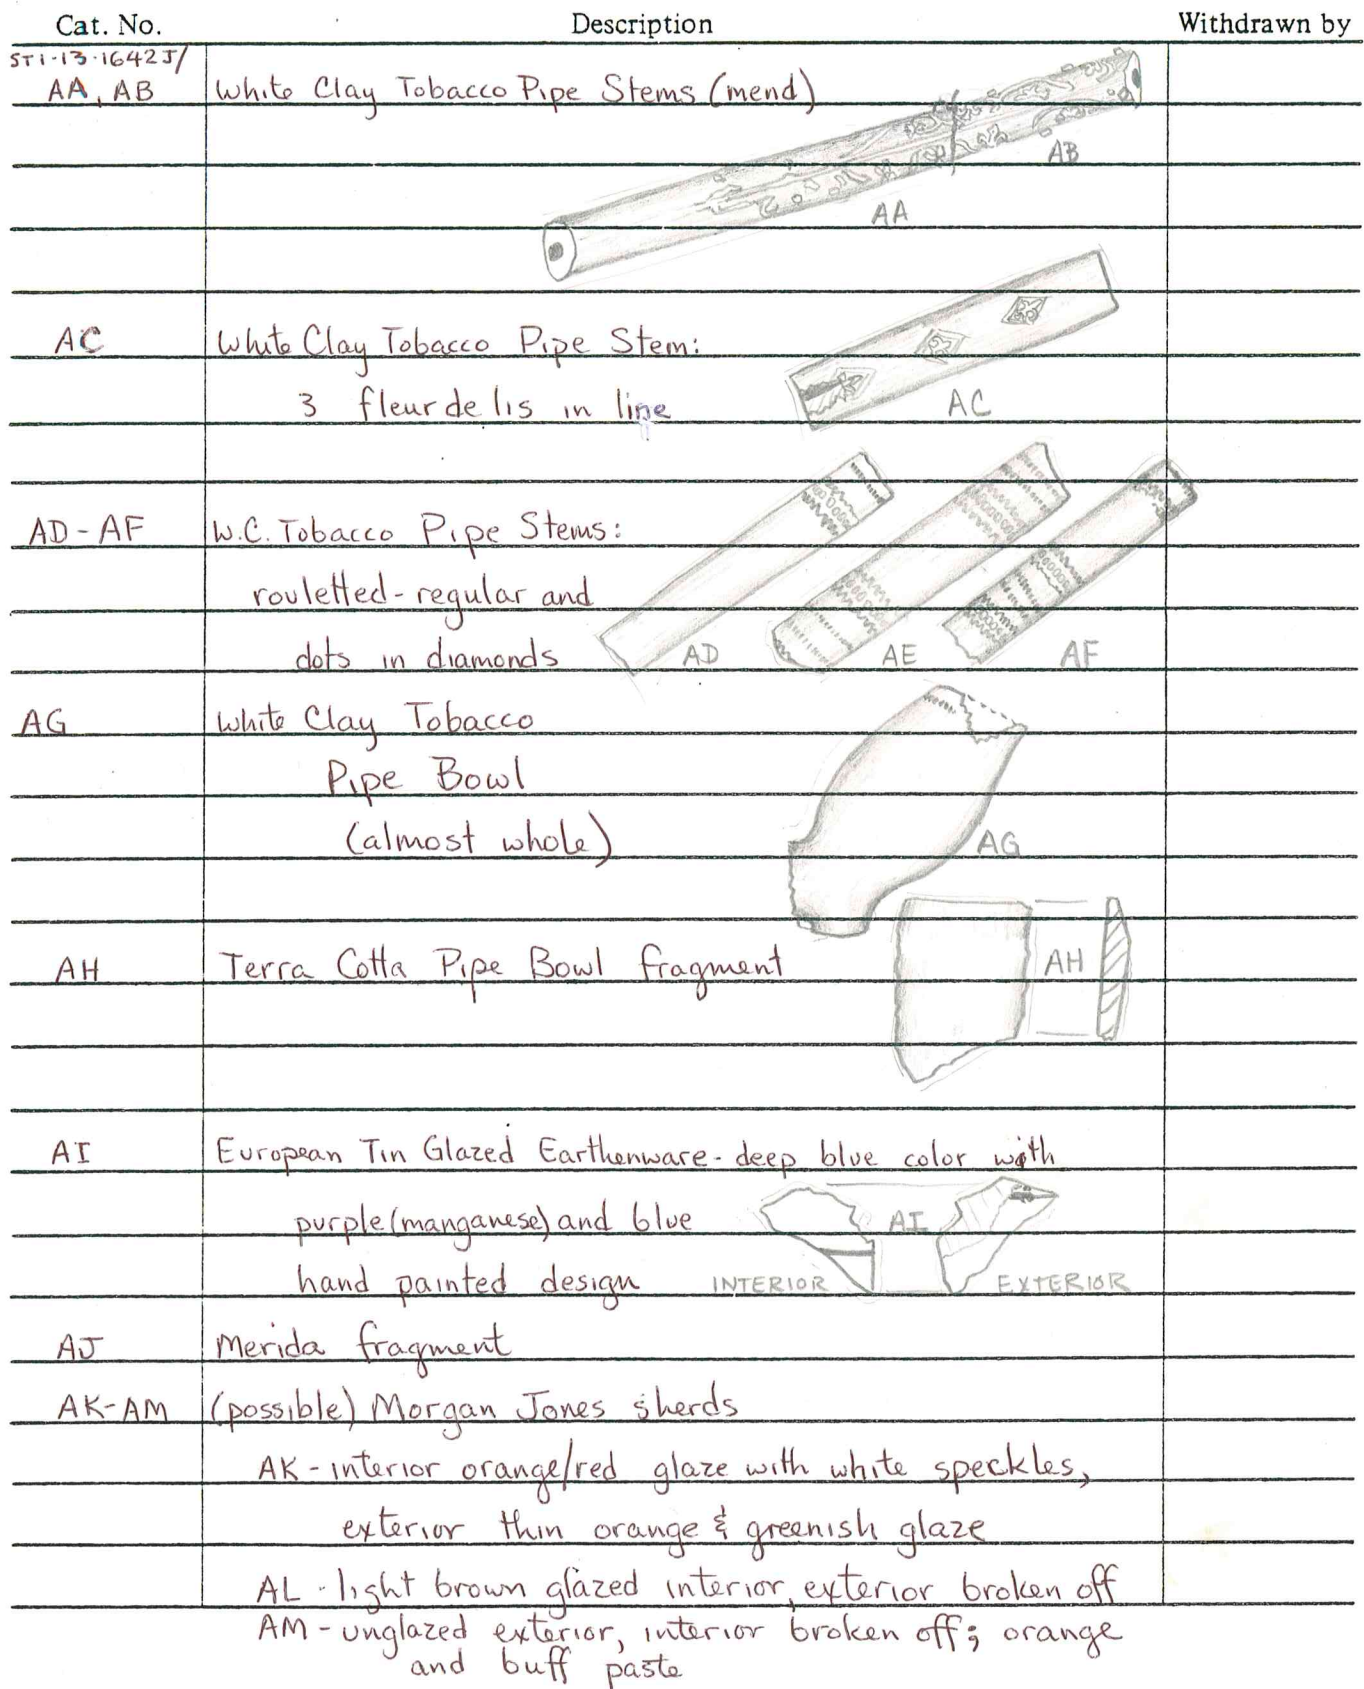 Cat. No. Description Withdrawn by
ST1-13-1642J/
AA, AB White Clay Tobacco Pipe Stems (mend)
AB
AA
AC White Clay Tobacco Pipe Stem:
3 fleur de lis in line
AC
AD - AF W.C. Tobacco Pipe Stems:
rouletted - regular and
dots in diamonds
AD AE AF
AG White Clay Tobacco
Pipe Bowl
(almost whole)
AG
AH Terra Cotta Pipe Bowl fragment
AH
AI European Tin Glazed Earthenware - deep blue color with
purple (manganese) and blue
AI
hand painted design
INTERIOR EXTERIOR
AJ Merida fragment
AK-AM (possible) Morgan Jones sherds
AK - interior orange/red glaze with white speckles,
exterior thin orange & greenish glaze
AL - light brown glazed interior, exterior broken off
AM - unglazed exterior, interior broken off; orange
and buff paste